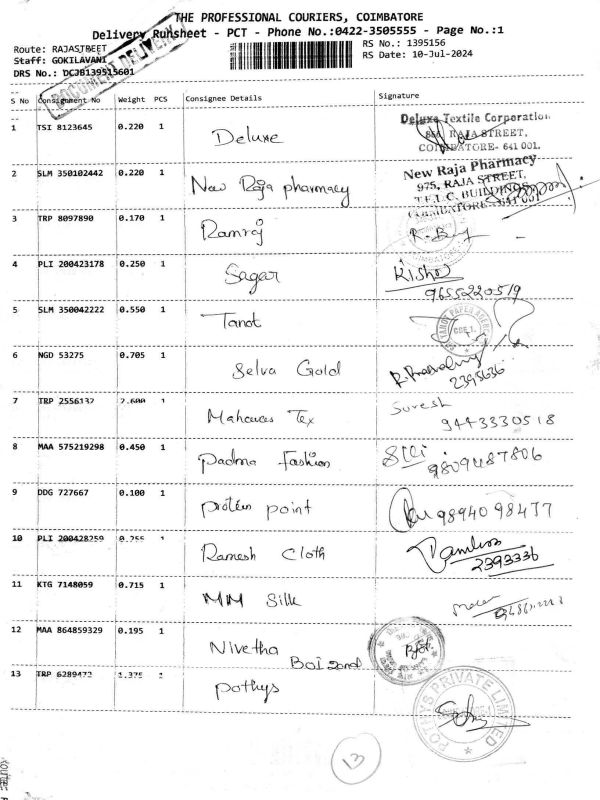 THE PROFESSIONAL COURIERS, COIMBATORE
Delivery Runsheet - PCT - Phone No.:0422-3505555 - Page No.:1
Route: RAJASTREET
RS No.: 1395156
Staff: GOKILAVANI
RS Date: 10-Jul-2024
DRS No.: DCJB139515601
DOCUMENT DELIVERY
S No Consignment No Weight PCS Consignee Details Signature
1 TSI 8123645 0.220 1 Deluxe
Deluxe Textile Corporation
RAJA STREET,
COIMBATORE- 641 001.
2 SLM 350102442 0.220 1 New Raja pharmacy
New Raja Pharmacy
975, RAJA STREET,
T.E.L.C. BUILDINGS
COIMBATORE - 641 001
3 TRP 8097890 0.170 1 Ramraj
4 PLI 200423178 0.250 1 Sagar Kishor
9655220519
5 SLM 350042222 0.550 1 Tanot
6 NGD 53275 0.705 1 Selva Gold
2395636
7 TRP 2556132 2.600 1 Tex Suresh
9443330518
8 MAA 575219298 0.450 1 Padma Fashion
9809487806
9 DDG 727667 0.100 1 protein point 9894098477
10 PLI 200428259 0.255 1 Ramesh Cloth
2393336
11 KTG 7148059 0.715 1 MM Silk
12 MAA 864859329 0.195 1 Nivetha
13 TRP 6289472 1.375 1 Pothys
POTHYS PRIVATE LIMITED
13